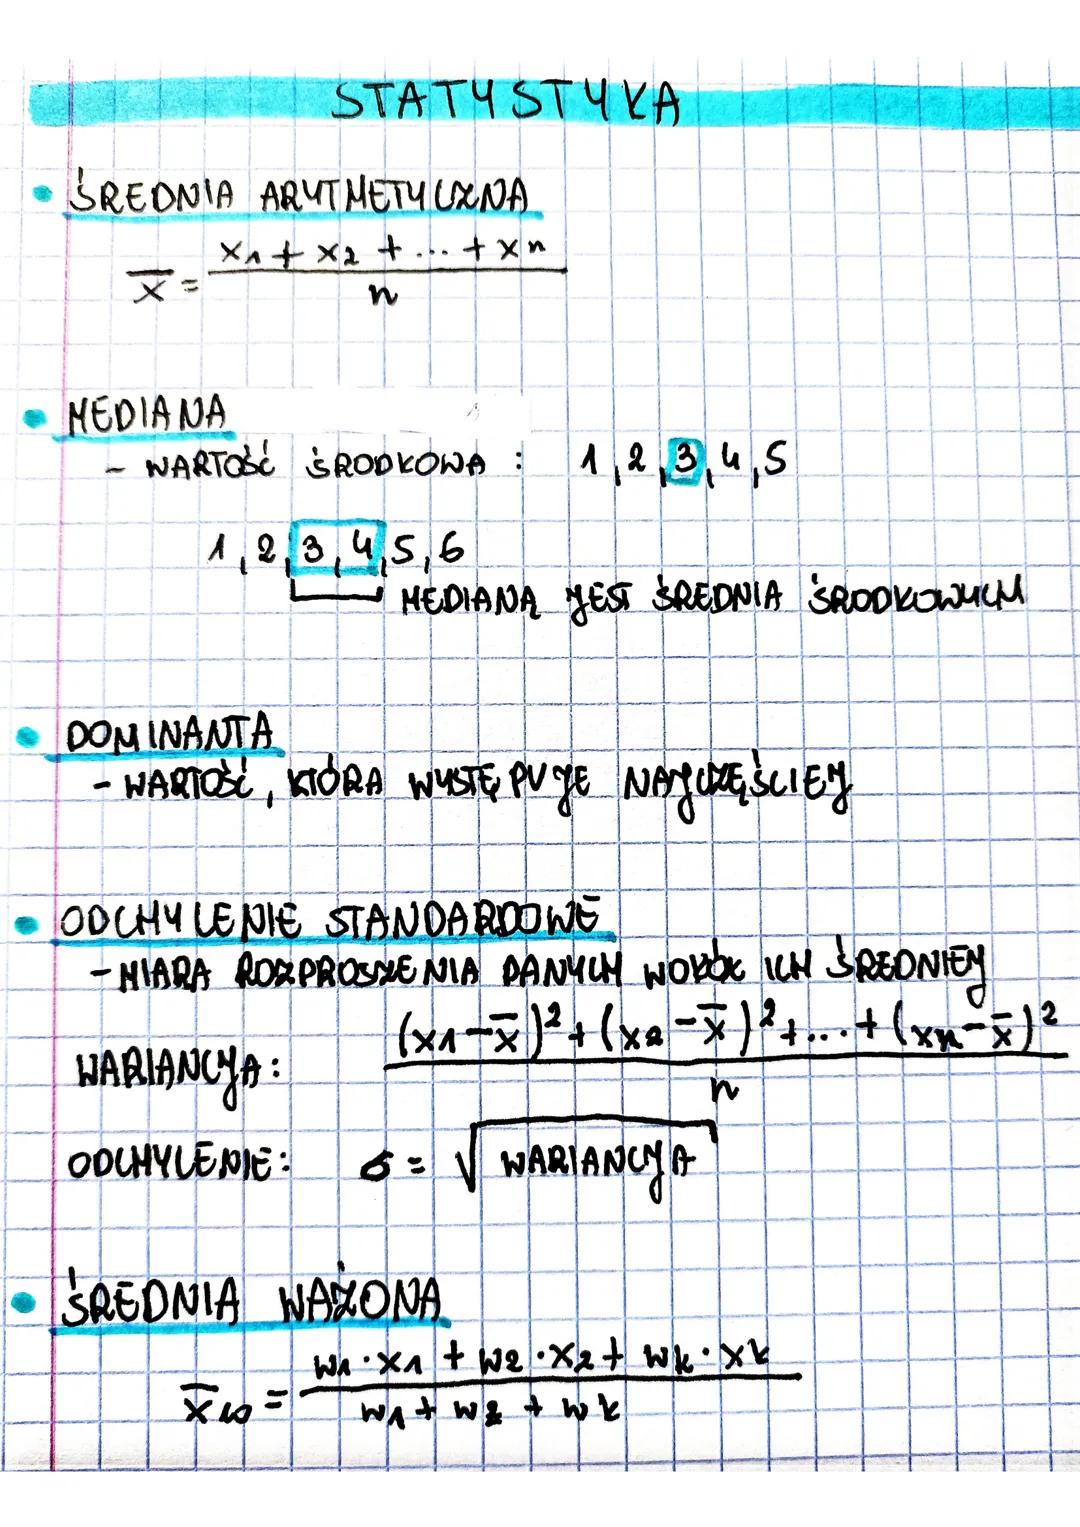 STATYSTYKA
• ŚREDNIA ARYTMETYCZNA
x̄ = (x1 + x2 + ... + xn) / n
• MEDIANA
- WARTOŚĆ ŚRODKOWA : 1, 2, 3, 4, 5
1, 2, 3, 4, 5, 6
MEDIANĄ JEST ŚREDNIA ŚRODKOWYCH
• DOMINANTA
- WARTOŚĆ, KTÓRA WYSTĘPUJE NAJCZĘŚCIEJ
• ODCHYLENIE STANDARDOWE
- MIARA ROZPROSZENIA DANYCH WOKÓŁ ICH ŚREDNIEJ
WARIANCJA: ((x1 - x̄)² + (x2 - x̄)² + ... + (xn - x̄)²) / n
ODCHYLENIE: σ = √WARIANCJA
• ŚREDNIA WAŻONA
x̄w = (w1 · x1 + w2 · x2 + wk · xk) / (w1 + w2 + wk)